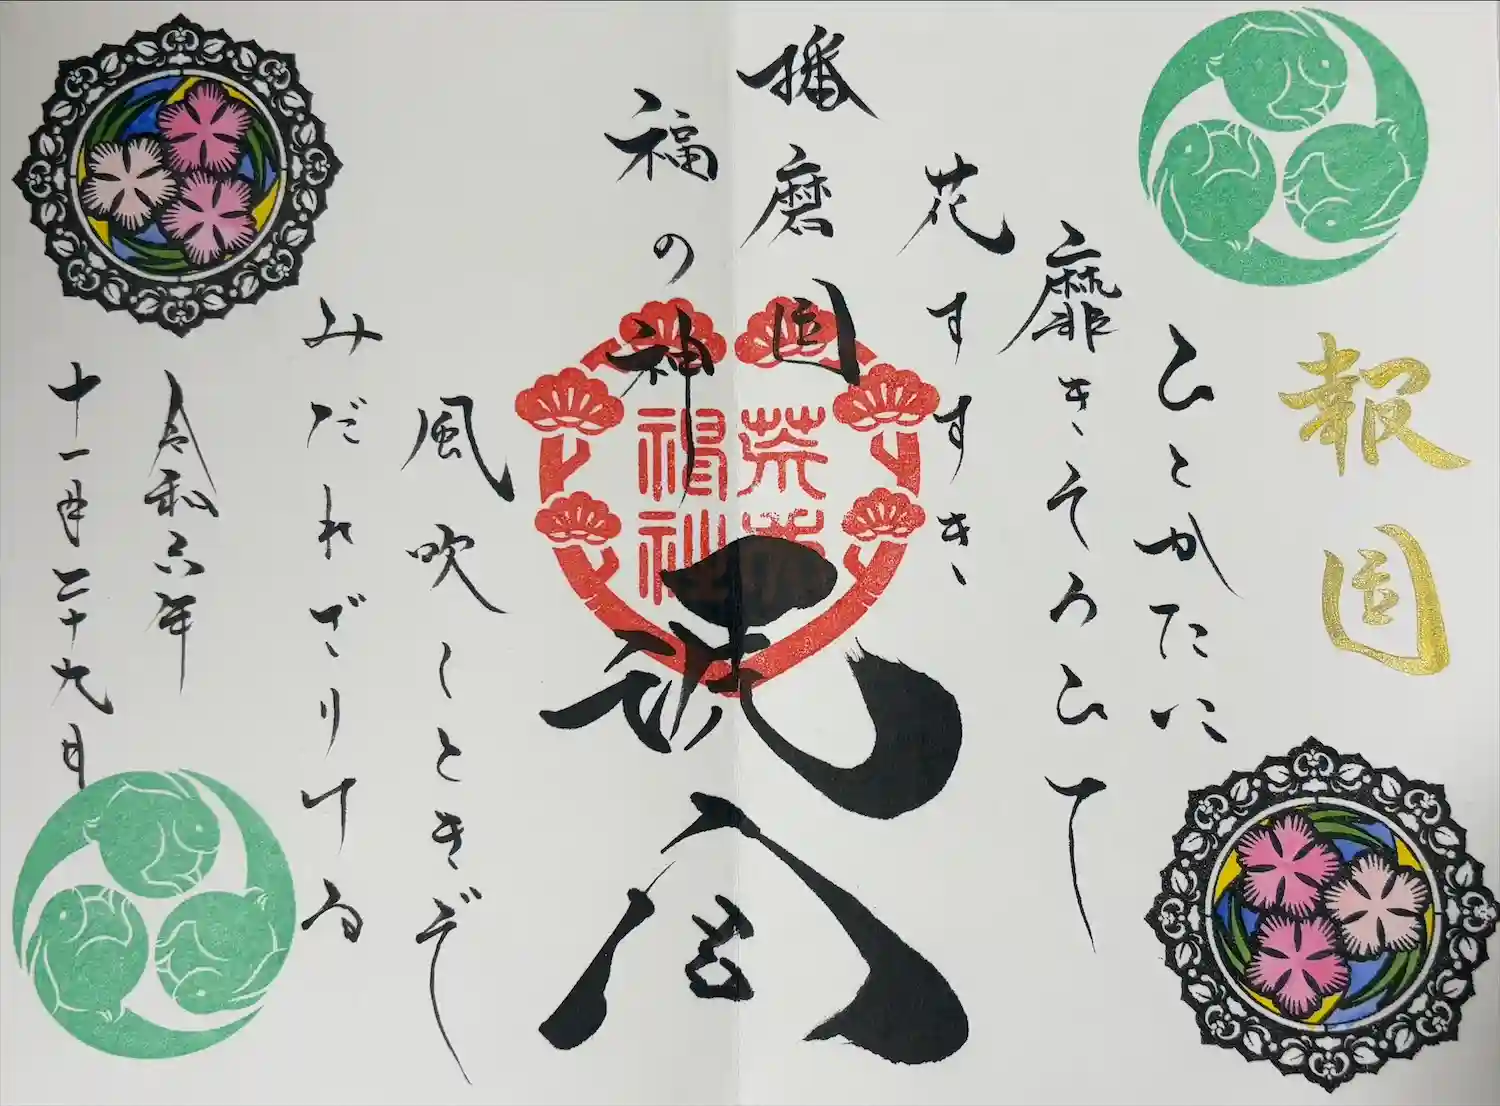 報国
ひとかたに
靡きそろひて
花すすき、
播磨国
福の神
荒井
神社
風吹くときぞ
みだれざりける
令和六年
十一月二十九日